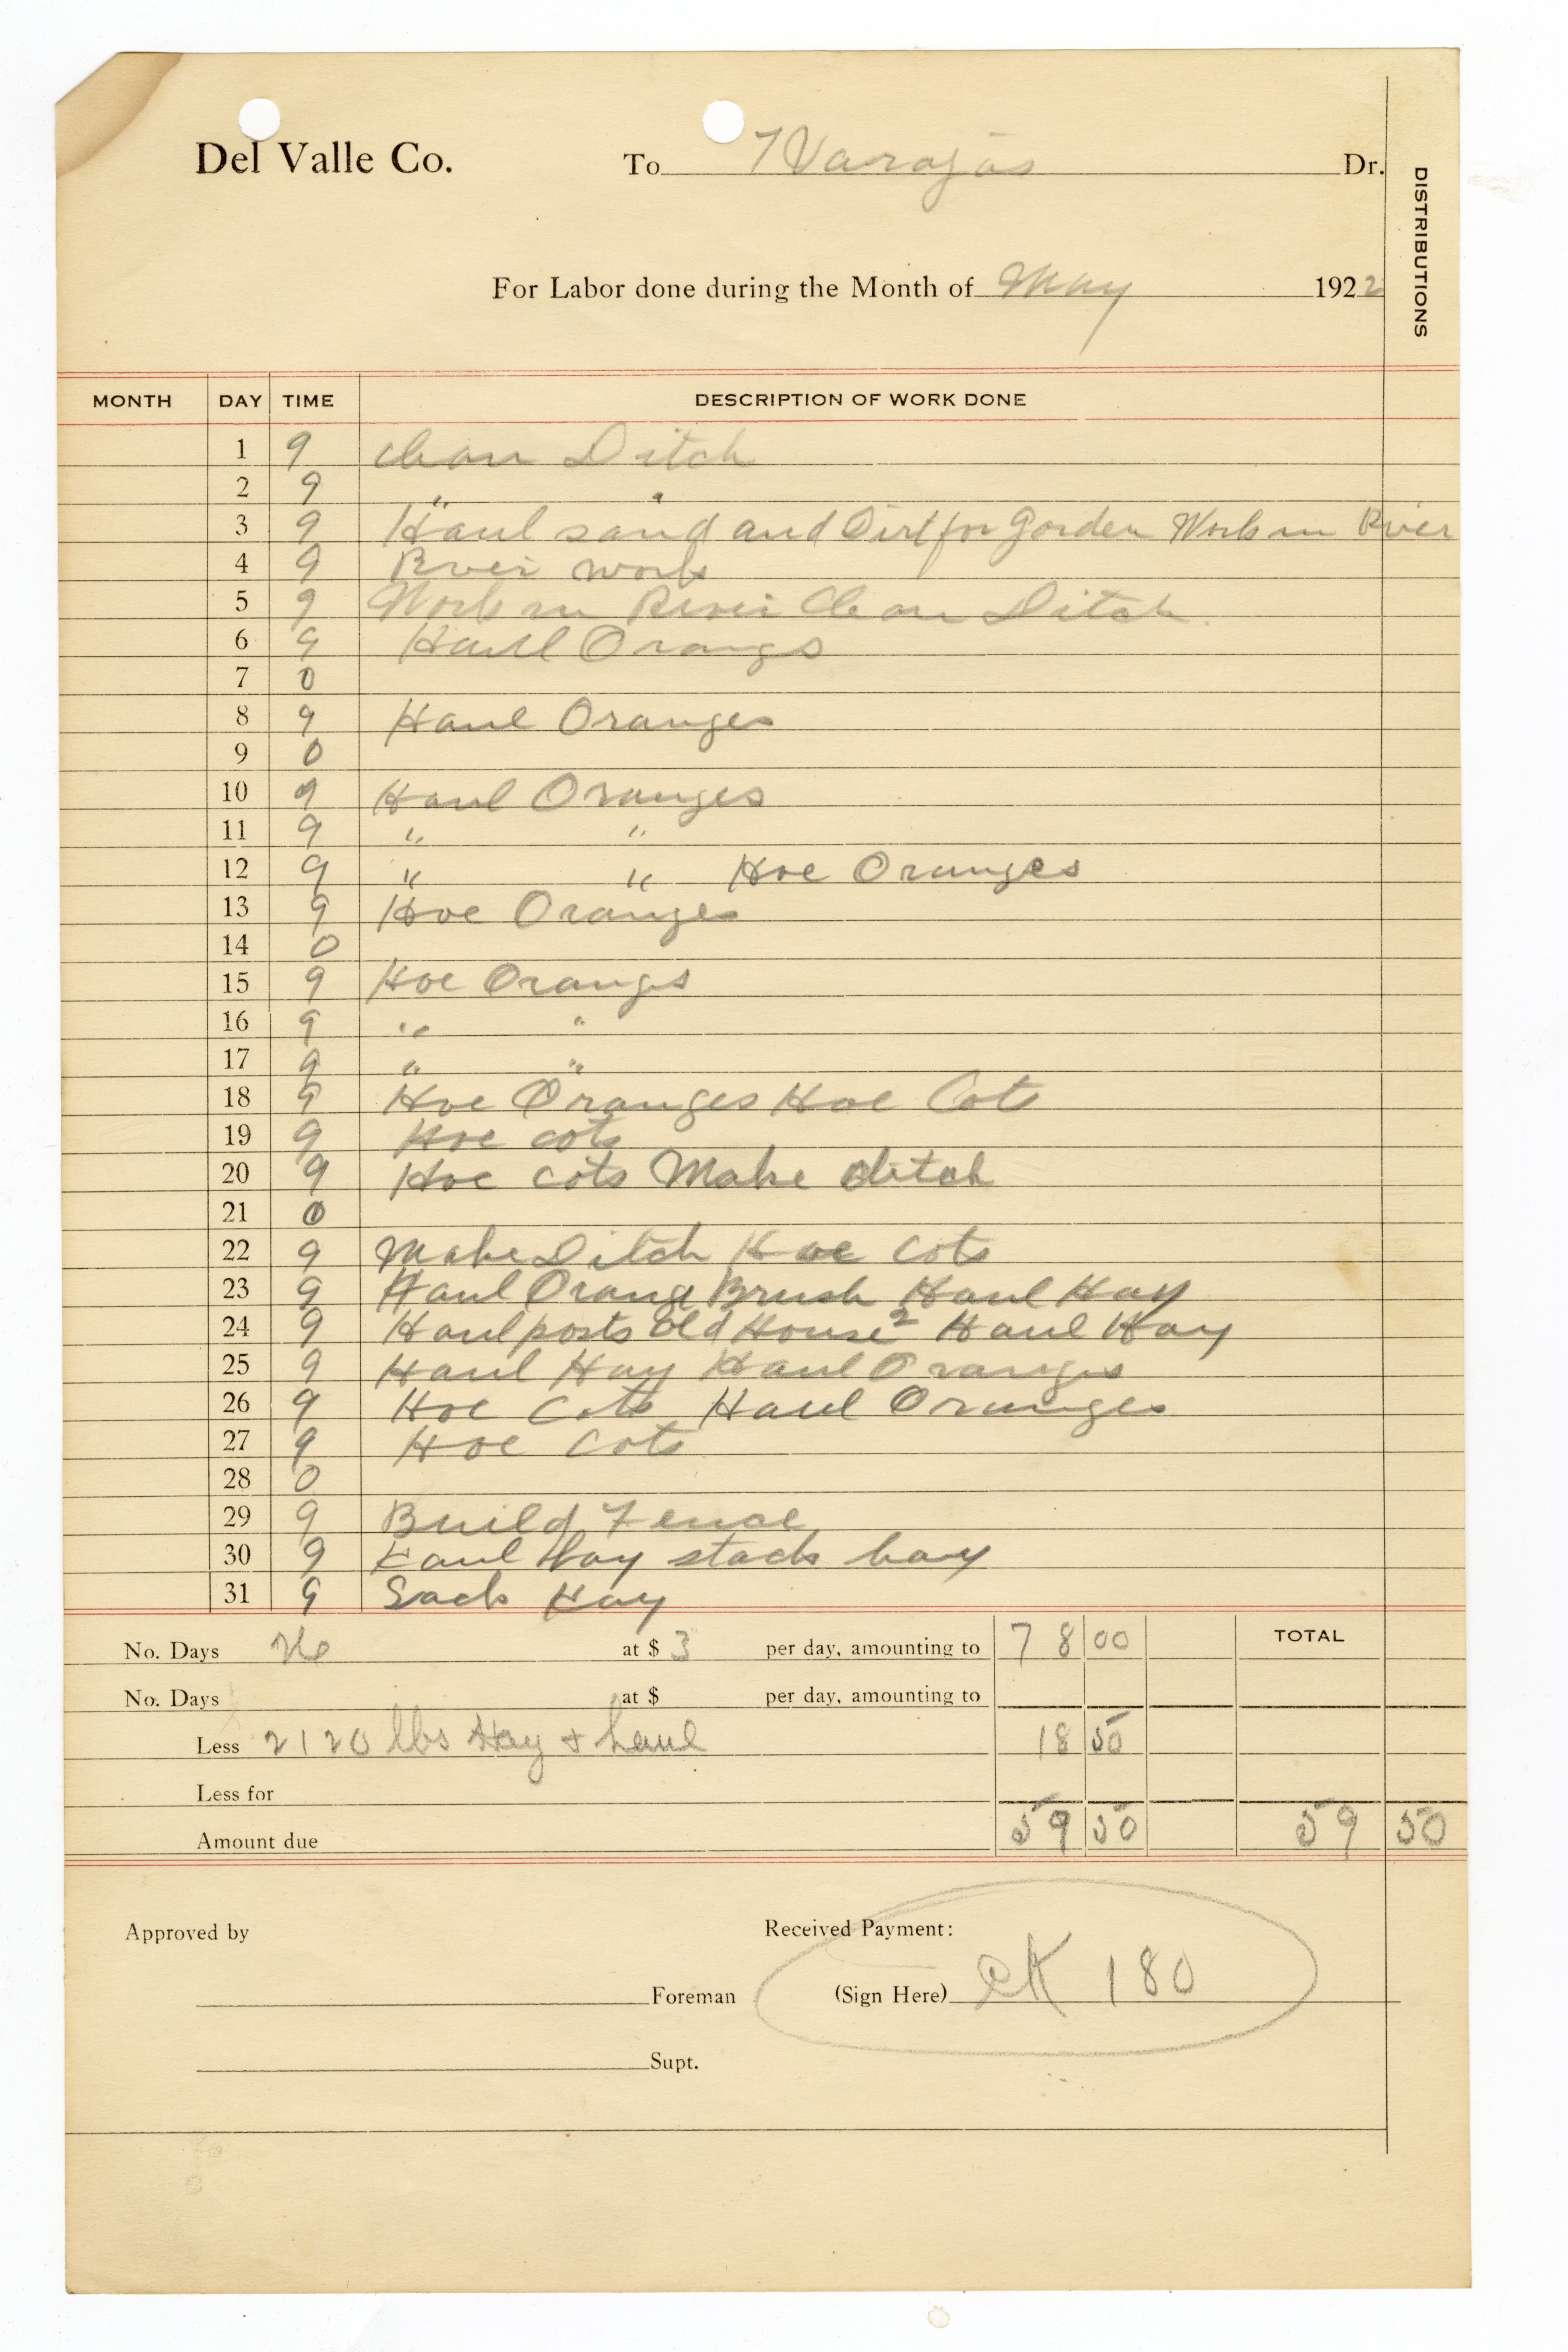 Del Valle Co. To F Varajas Dr.
DISTRIBUTIONS
For Labor done during the Month of May 1922
MONTH DAY TIME DESCRIPTION OF WORK DONE
1 9 Clean Ditch
2 9 " "
3 9 Haul sand and Dirt for Garden Work in River
4 9 River work
5 9 Work in River Clean Ditch
6 9 Haull Orangs
7 0
8 9 Haul Oranges
9 0
10 9 Haul Oranges
11 9 " "
12 9 " " Hoe Oranges
13 9 Hoe Oranges
14 0
15 9 Hoe Orangs
16 9 " "
17 9 " "
18 9 Hoe Oranges Hoe Cots
19 9 Hoe cots
20 9 Hoe cots Make ditch
21 0
22 9 Make Ditch Hoe Cots
23 9 Haul Orange Brush Haul Hay
24 9 Haul posts Old House 2 Haul Hay
25 9 Haul Hay Haul Oranges
26 9 Hoe Cots Haul Oranges
27 9 Hoe Cots
28 0
29 9 Build Fence
30 9 Haul Hay stack hay
31 9 Sack Hay
No. Days 26 at $ 3 per day, amounting to 78 00 TOTAL
No. Days at $ per day, amounting to
Less 2120 lbs Hay + haul 18 50
Less for
Amount due 59 50 59 50
Approved by Received Payment:
Foreman (Sign Here) CK 180
Supt.